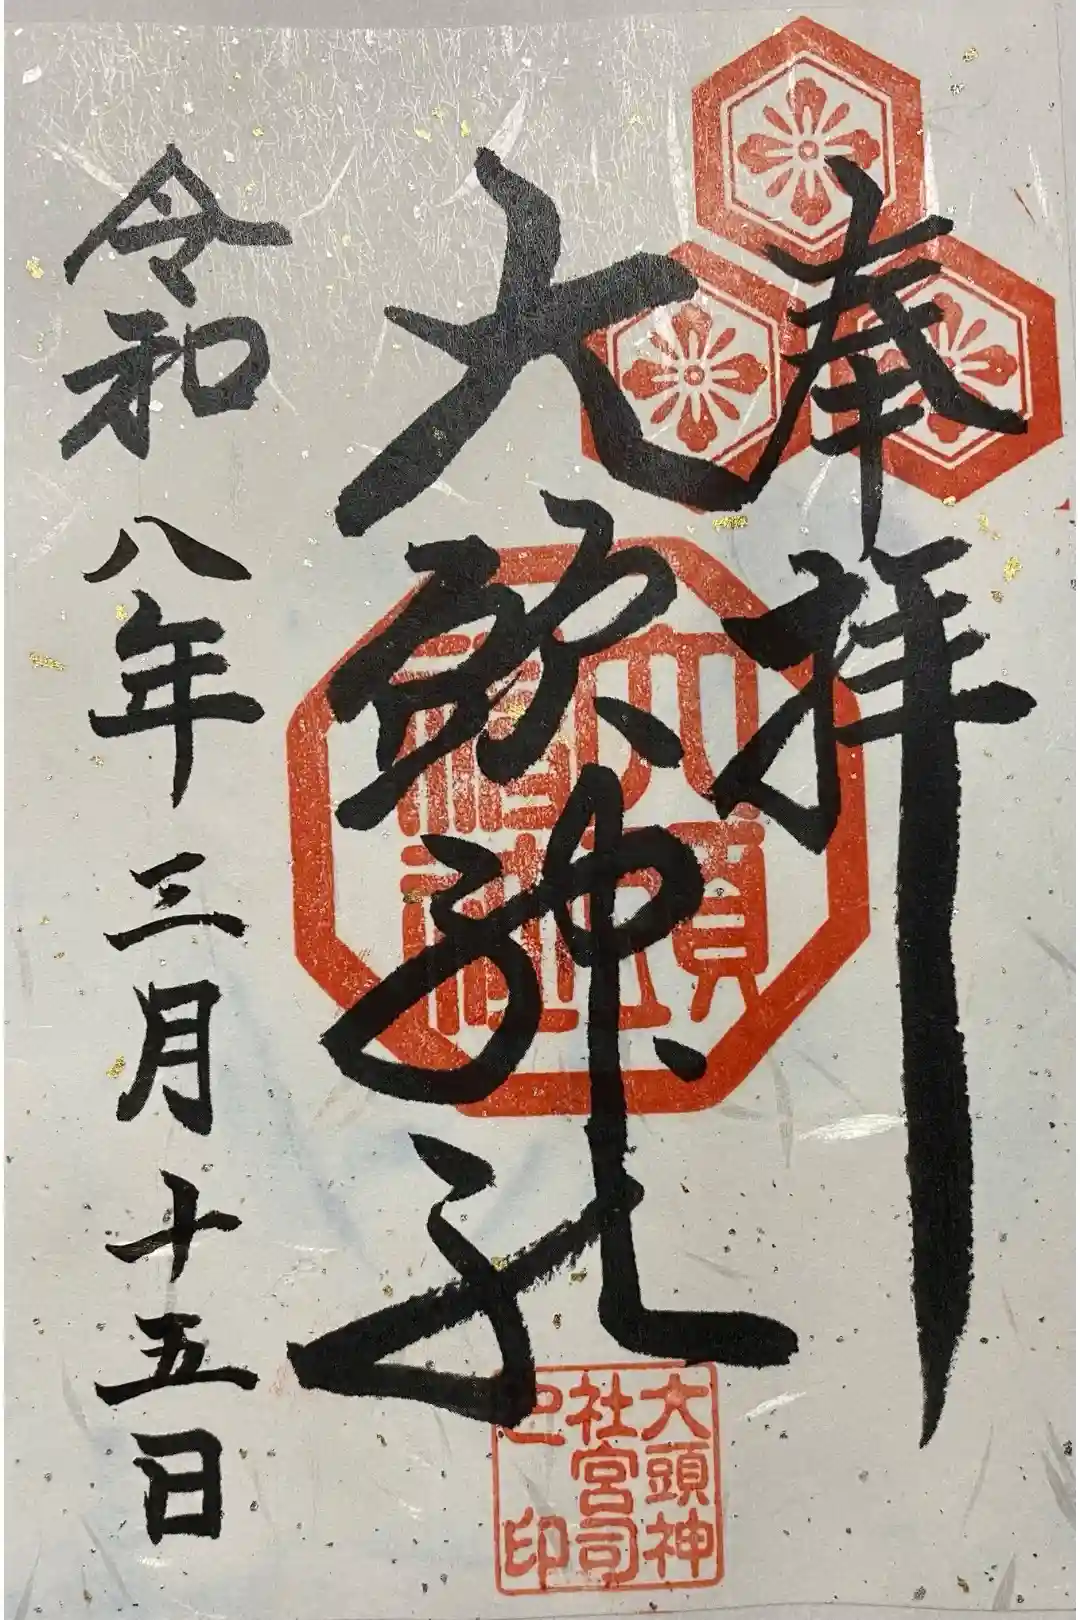 奉拝
大頭神社
令和八年三月十五日
大頭神
社宮司
之印